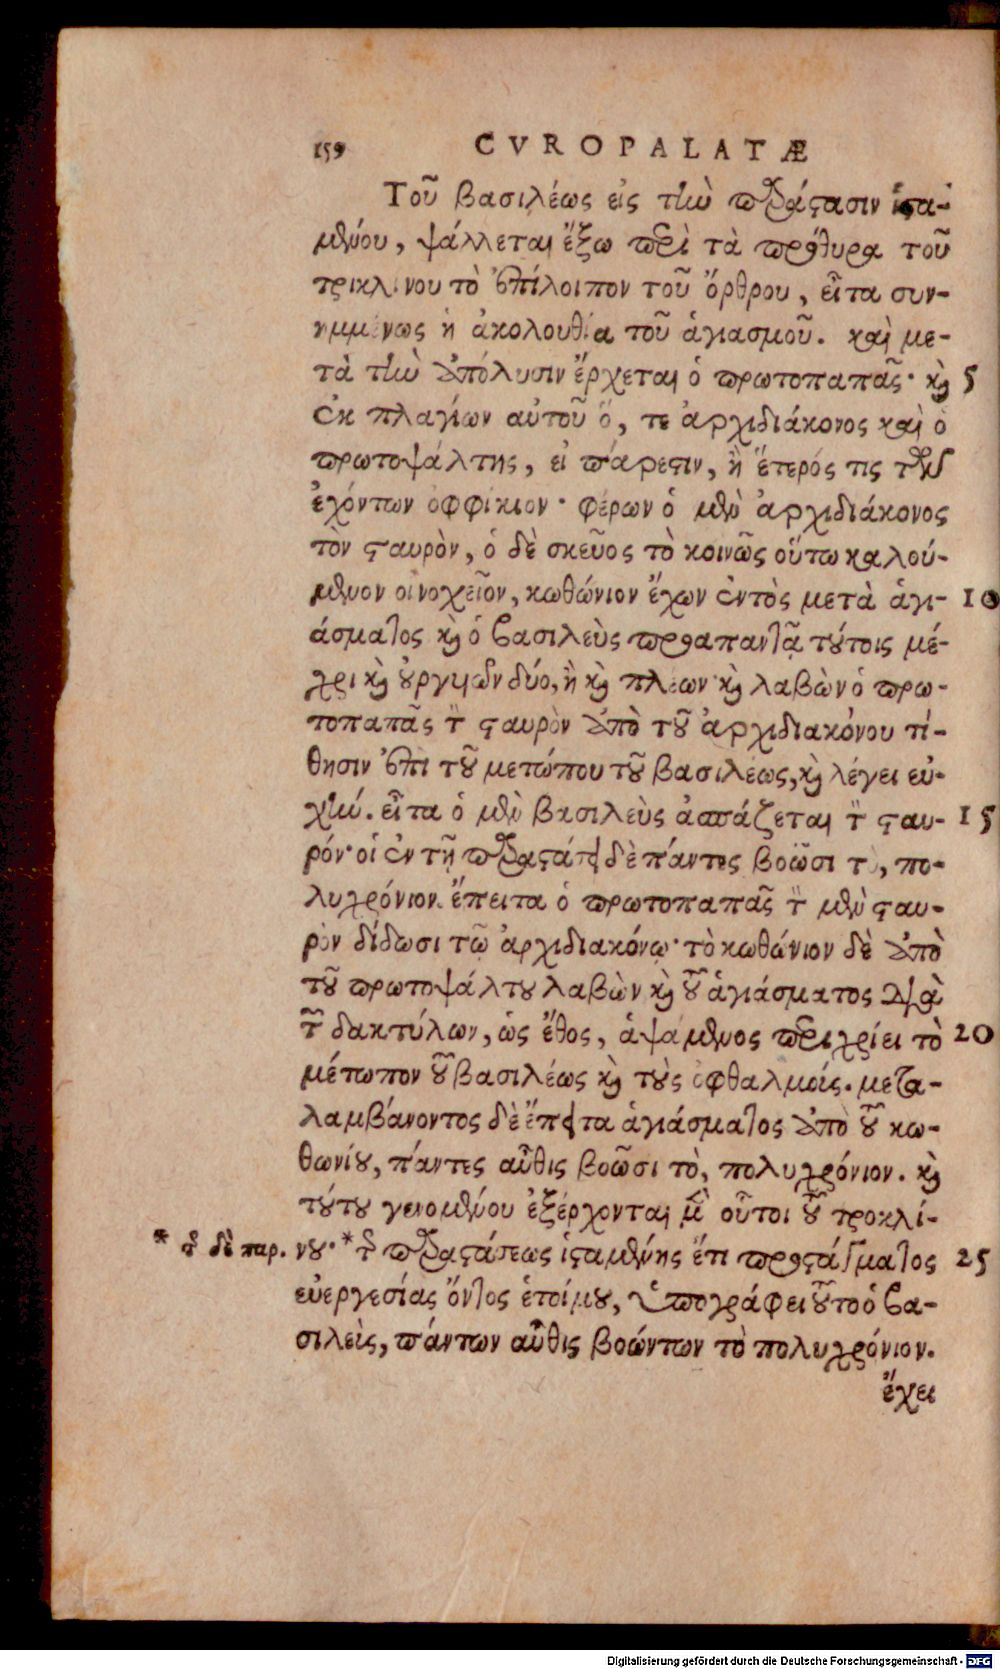 159 CVROPALATÆ
Τοῦ βασιλέως εἰς τὴν παράστασιν ἱστα-
μένου, ψάλλεται ἔξω περὶ τὰ πρόθυρα τοῦ
τρικλίνου τὸ ἐπίλοιπον τοῦ ὄρθρου, εἶτα συν-
ημμένως ἡ ἀκολουθία τοῦ ἁγιασμοῦ. καὶ με-
τὰ τὴν ἀπόλυσιν ἔρχεται ὁ πρωτοπαπᾶς· καὶ 5
ἐκ πλαγίων αὐτοῦ ὅ, τε ἀρχιδιάκονος καὶ ὁ
πρωτοψάλτης, εἰ πάρεστιν, ἢ ἕτερός τις τῶν
ἐχόντων ὀφφίκιον· φέρων ὁ μὲν ἀρχιδιάκονος
τὸν σταυρὸν, ὁ δὲ σκεῦος τὸ κοινῶς οὕτω καλού-
μενον οἰνοχεῖον, κωθώνιον ἔχων ἐντὸς μετὰ ἁγι- 10
άσματος καὶ ὁ βασιλεὺς προαπαντᾷ τούτοις μέ-
χρι καὶ οὐργιῶν δύο, ἢ καὶ πλέον καὶ λαβὼν ὁ πρω-
τοπαπᾶς τὸν σταυρὸν ἀπὸ τοῦ ἀρχιδιακόνου τί-
θησιν ἐπὶ τοῦ μετώπου τοῦ βασιλέως, καὶ λέγει εὐ-
χήν. εἶτα ὁ μὲν βασιλεὺς ἀσπάζεται τὸν σταυ- 15
ρόν· οἱ ἐν τῇ παραστάσει δὲ πάντες βοῶσι τὸ, πο-
λυχρόνιον. ἔπειτα ὁ πρωτοπαπᾶς τὸν μὲν σταυ-
ρὸν δίδωσι τῷ ἀρχιδιακόνῳ· τὸ κωθώνιον δὲ ἀπὸ
τοῦ πρωτοψάλτου λαβὼν καὶ τοῦ ἁγιάσματος διὰ
τῶν δακτύλων, ὡς ἔθος, ἁψάμενος περιχρίει τὸ 20
μέτωπον τοῦ βασιλέως καὶ τοὺς ὀφθαλμούς. μετα-
λαμβάνοντος δὲ ἔπειτα ἁγιάσματος ἀπὸ τοῦ κω-
θωνίου, πάντες αὖθις βοῶσι τὸ, πολυχρόνιον. καὶ
τούτου γενομένου ἐξέρχονται μὲν οὗτοι τοῦ τροκλί-
* τῆς δὲ παρ. νου· * τῆς παραστάσεως ἱσταμένης ἔτι προστάγματος 25
εὐεργεσίας ὄντος ἑτοίμου, ὑπογράφει τοῦτο ὁ βα-
σιλεὺς, πάντων αὖθις βοώντων τὸ πολυχρόνιον.
ἔχει
Digitalisierung gefördert durch die Deutsche Forschungsgemeinschaft - DFG